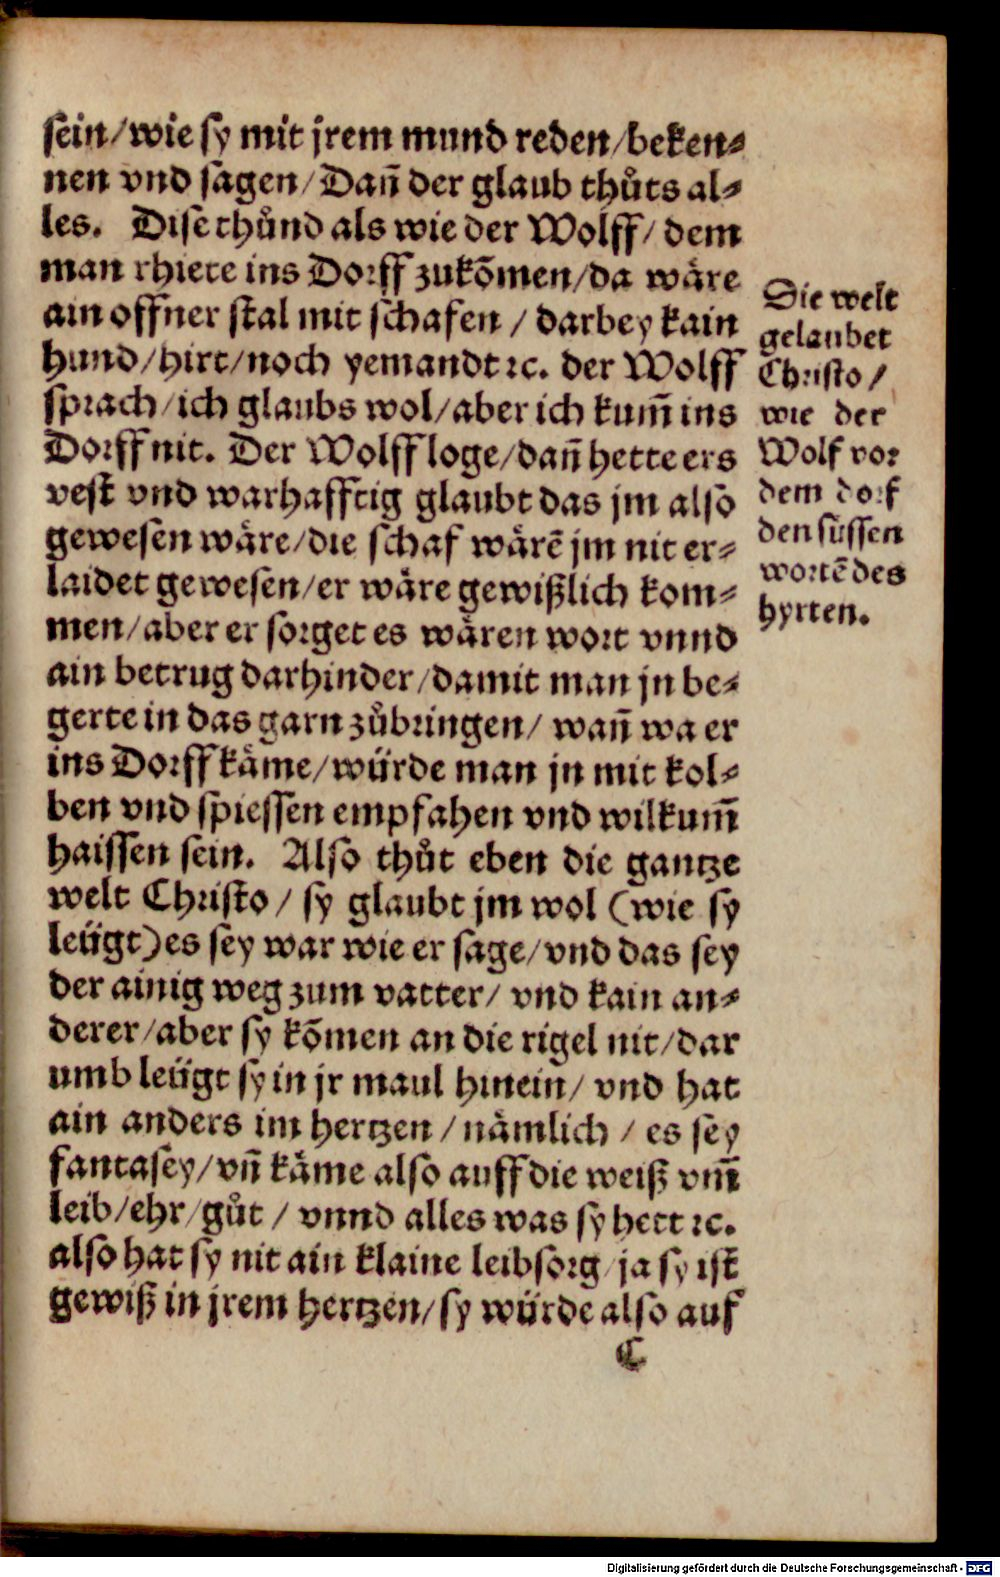 sein/wie sy mit jrem mund reden/beken⸗
nen vnd sagen/Dañ der glaub thůts al⸗
les. Dise thůnd als wie der Wolff/dem
man rhiete ins Dorff zukõmen/da wåre
ain offner stal mit schafen / darbey kain
hund/hirt/noch yemandt ꝛc. der Wolff
sprach/ich glaubs wol/aber ich kum̃ ins
Dorff nit. Der Wolff loge/dañ hette ers
vest vnd warhafftig glaubt das jm also
gewesen wåre/die schaf wårẽ jm nit er⸗
laidet gewesen/er wåre gewißlich kom⸗
men/aber er sorget es wåren wort vnnd
ain betrug darhinder/damit man jn be⸗
gerte in das garn zůbringen/ wañ wa er
ins Dorff kåme/würde man jn mit kol⸗
ben vnd spiessen empfahen vnd wilkum̃
haissen sein. Also thůt eben die gantze
welt Christo/ sy glaubt jm wol (wie sy
leügt) es sey war wie er sage/vnd das sey
der ainig weg zum vatter/ vnd kain an⸗
derer/aber sy kõmen an die rigel nit/dar
umb leügt sy in jr maul hinein/ vnd hat
ain anders im hertzen/nåmlich / es sey
fantasey/vñ kåme also auff die weiß vm̃
leib/ehr/gůt / vnnd alles was sy hett ꝛc.
also hat sy nit ain klaine leibsorg/ja sy ist
gewiß in jrem hertzen/sy würde also auf
C
Die welt
gelaubet
Christo/
wie der
Wolf vor
dem dorf
den süssen
wortẽ des
hyrten.
Digitalisierung gefördert durch die Deutsche Forschungsgemeinschaft - DFG